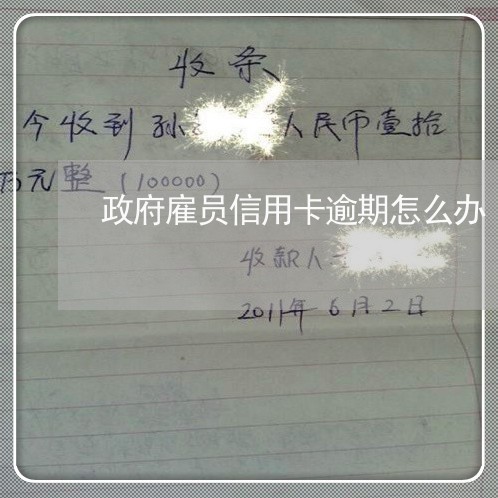 收条
今收到孙 人民币壹拾
万元整(100000)
政府雇员信用卡逾期怎么办
收款人
2011年6月2日